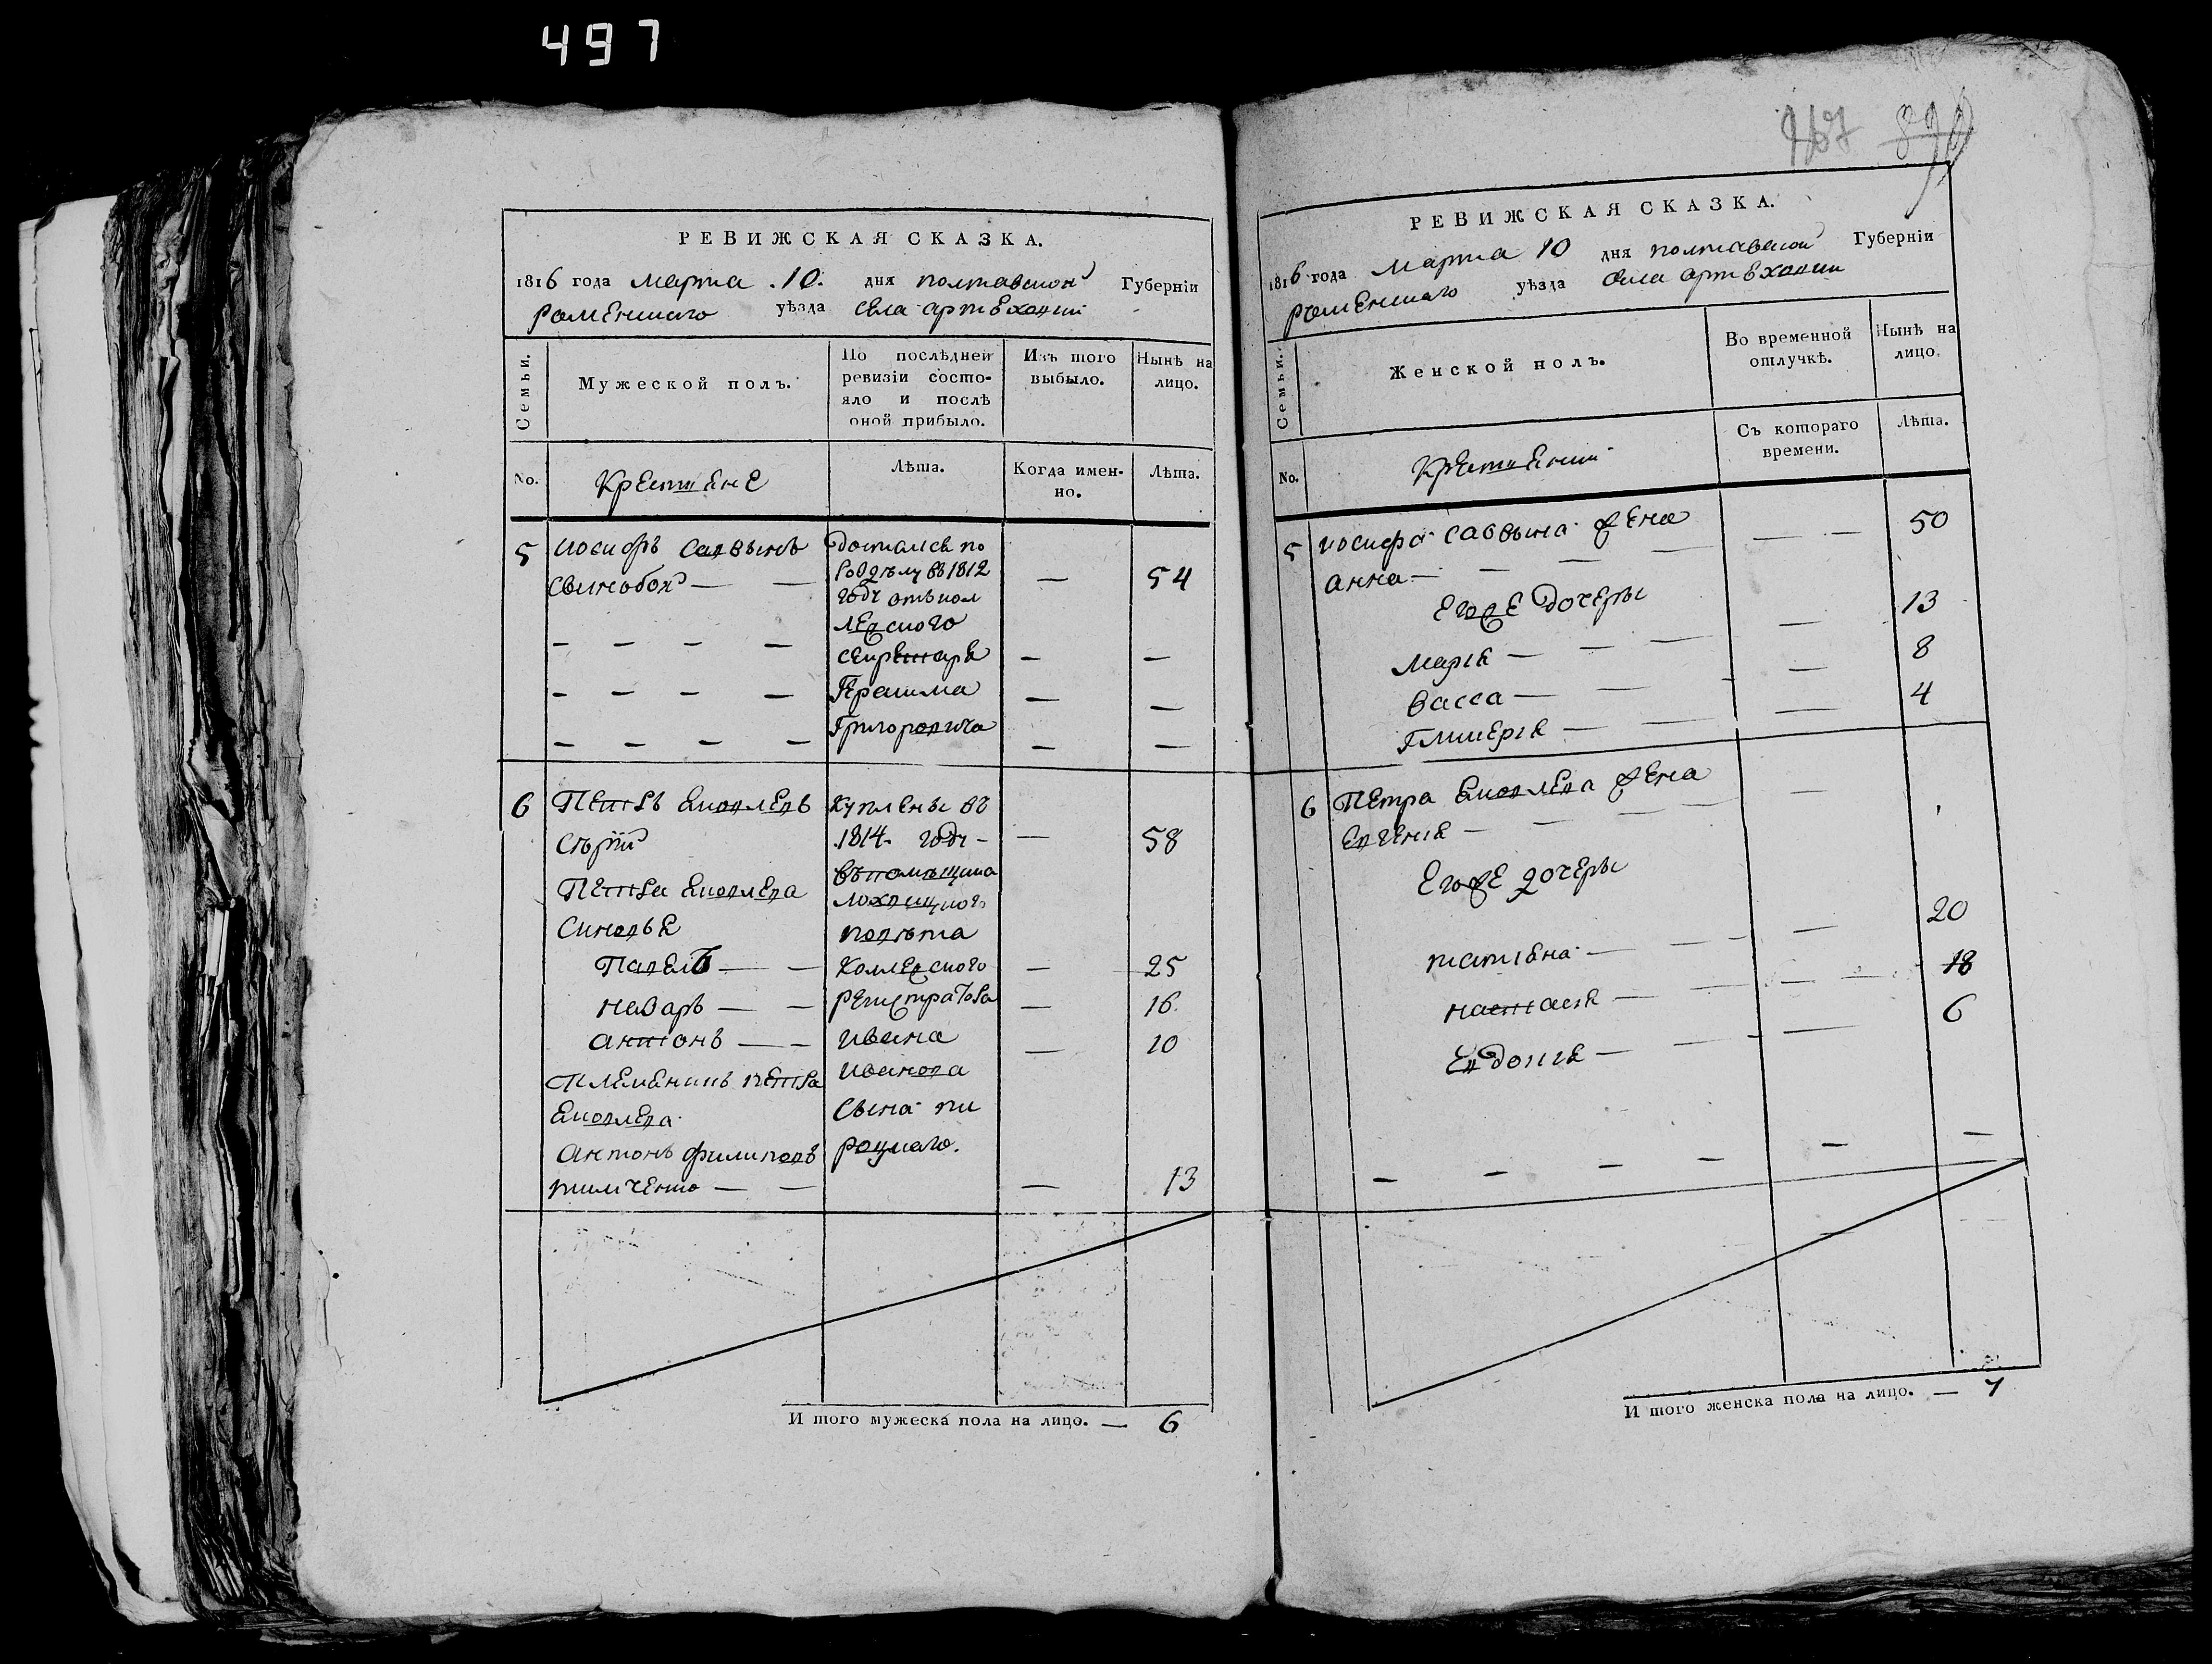 497
РЕВИЖСКАЯ СКАЗКА.
1816 года марта .10. дня полтавской Губерніи
роменского уѣзда села артюховки
Семьи.
Мужеской полъ.
По послѣдней
ревизіи состо-
яло и послѣ
оной прибыло.
Изъ того
выбыло.
Нынѣ на
лицо.
No.
Крестяне
Лѣта.
Когда имен-
но.
Лѣта.
5 иосифъ саввинъ
свинобой — —
Достался по
розделу въ 1812
году отъ кол
лежского
секретаря
Герасима
Григоровича
— 54
6 Петръ яковлевъ
Сѣрый
Куплены въ
1814. году -
58
Петра яковлева
Синовья
Павелъ — — 25
назаръ — — 16.
антонъ — — 10
въ помѣщика
лохвицкого
повѣта
коллежского
регистратора
ивана
иванова
сына пи
роцкаго.
Племяникъ петра
яковлева
антонъ филиповъ
тимченко — — 13
И того мужеска пола на лицо. — 6
РЕВИЖСКАЯ СКАЗКА.
1816 года марта 10 дня полтавской Губерніи
роменского уѣзда села артюховки
Семьи.
Женской полъ.
Во временной
отлучкѣ.
Нынѣ на
лицо.
No.
Крестянки
Съ котораго
времени.
Лѣта.
5 иосифа саввина жена
анна — — — 50
Его же дочеры
марія — — — 13
васса — — 8
гликерія — — 4
6 Петра яковлева жена
Евгенія — — —
Его же дочеры
татіяна — — — 20
настасія — — 18
Евдокія — — 6
И того женска пола на лицо. — 7